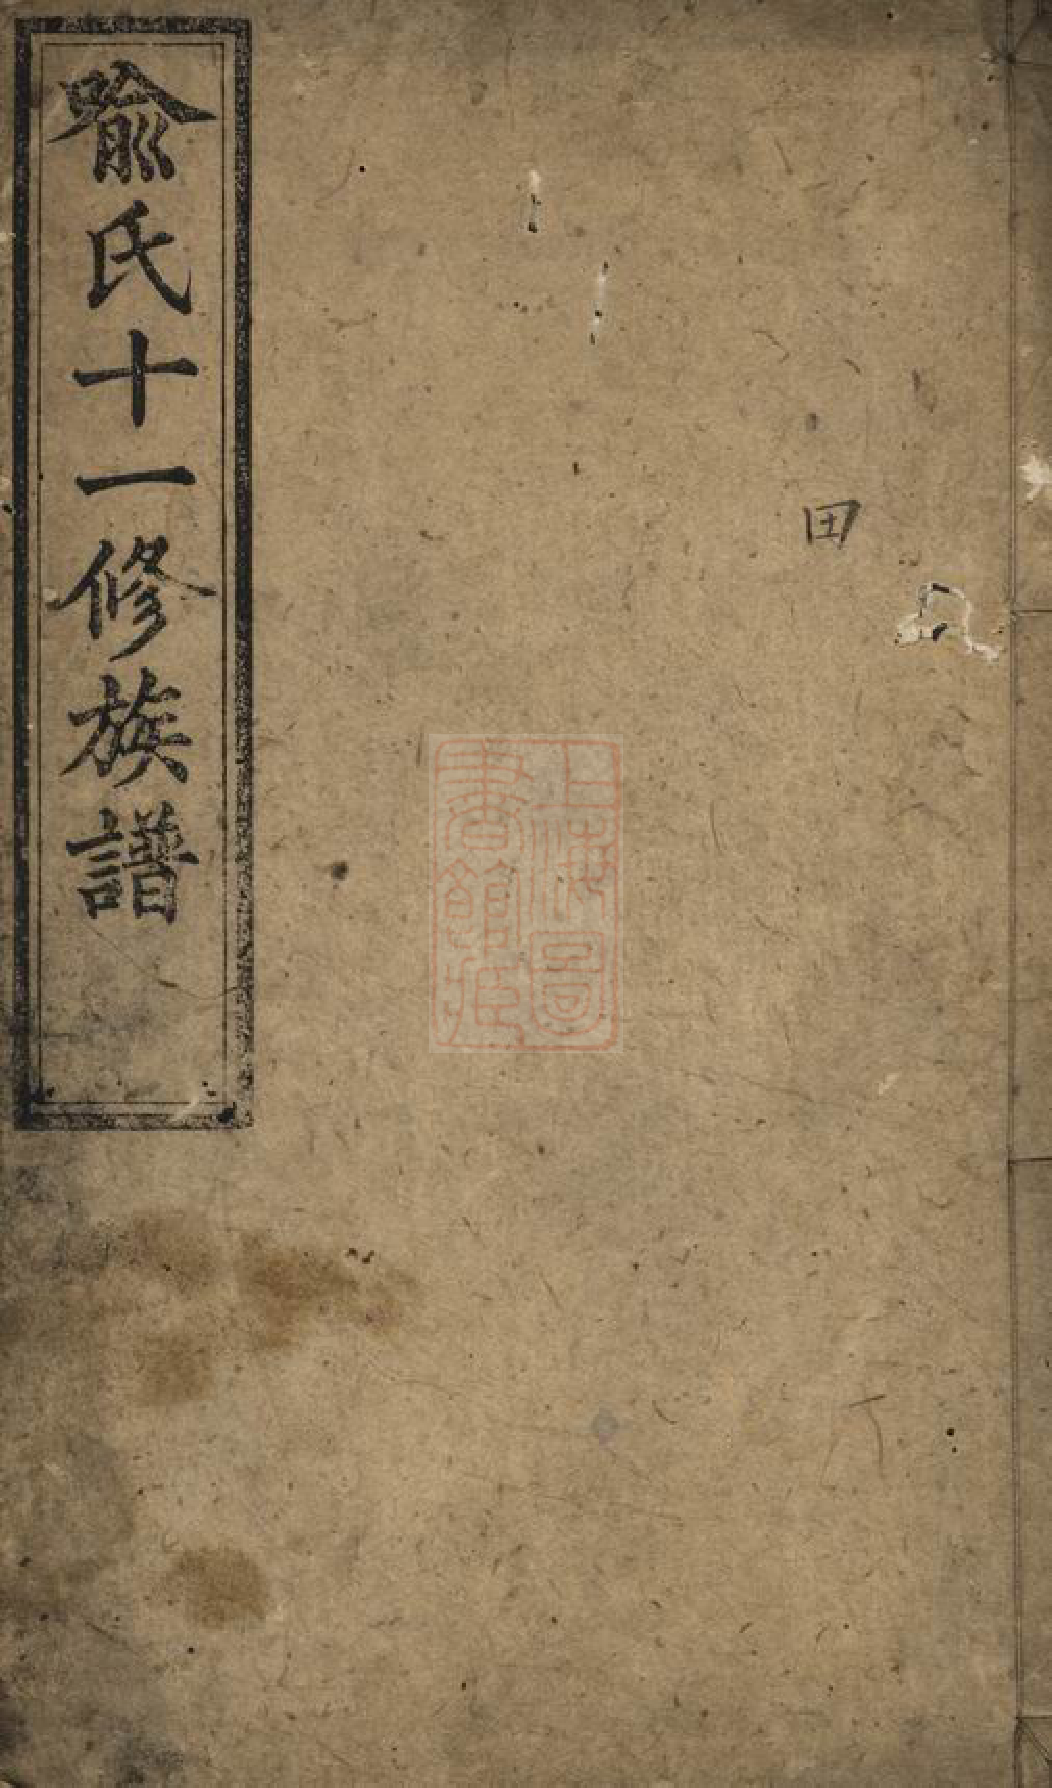 喻氏十一修族譜
田
上海圖
書館藏